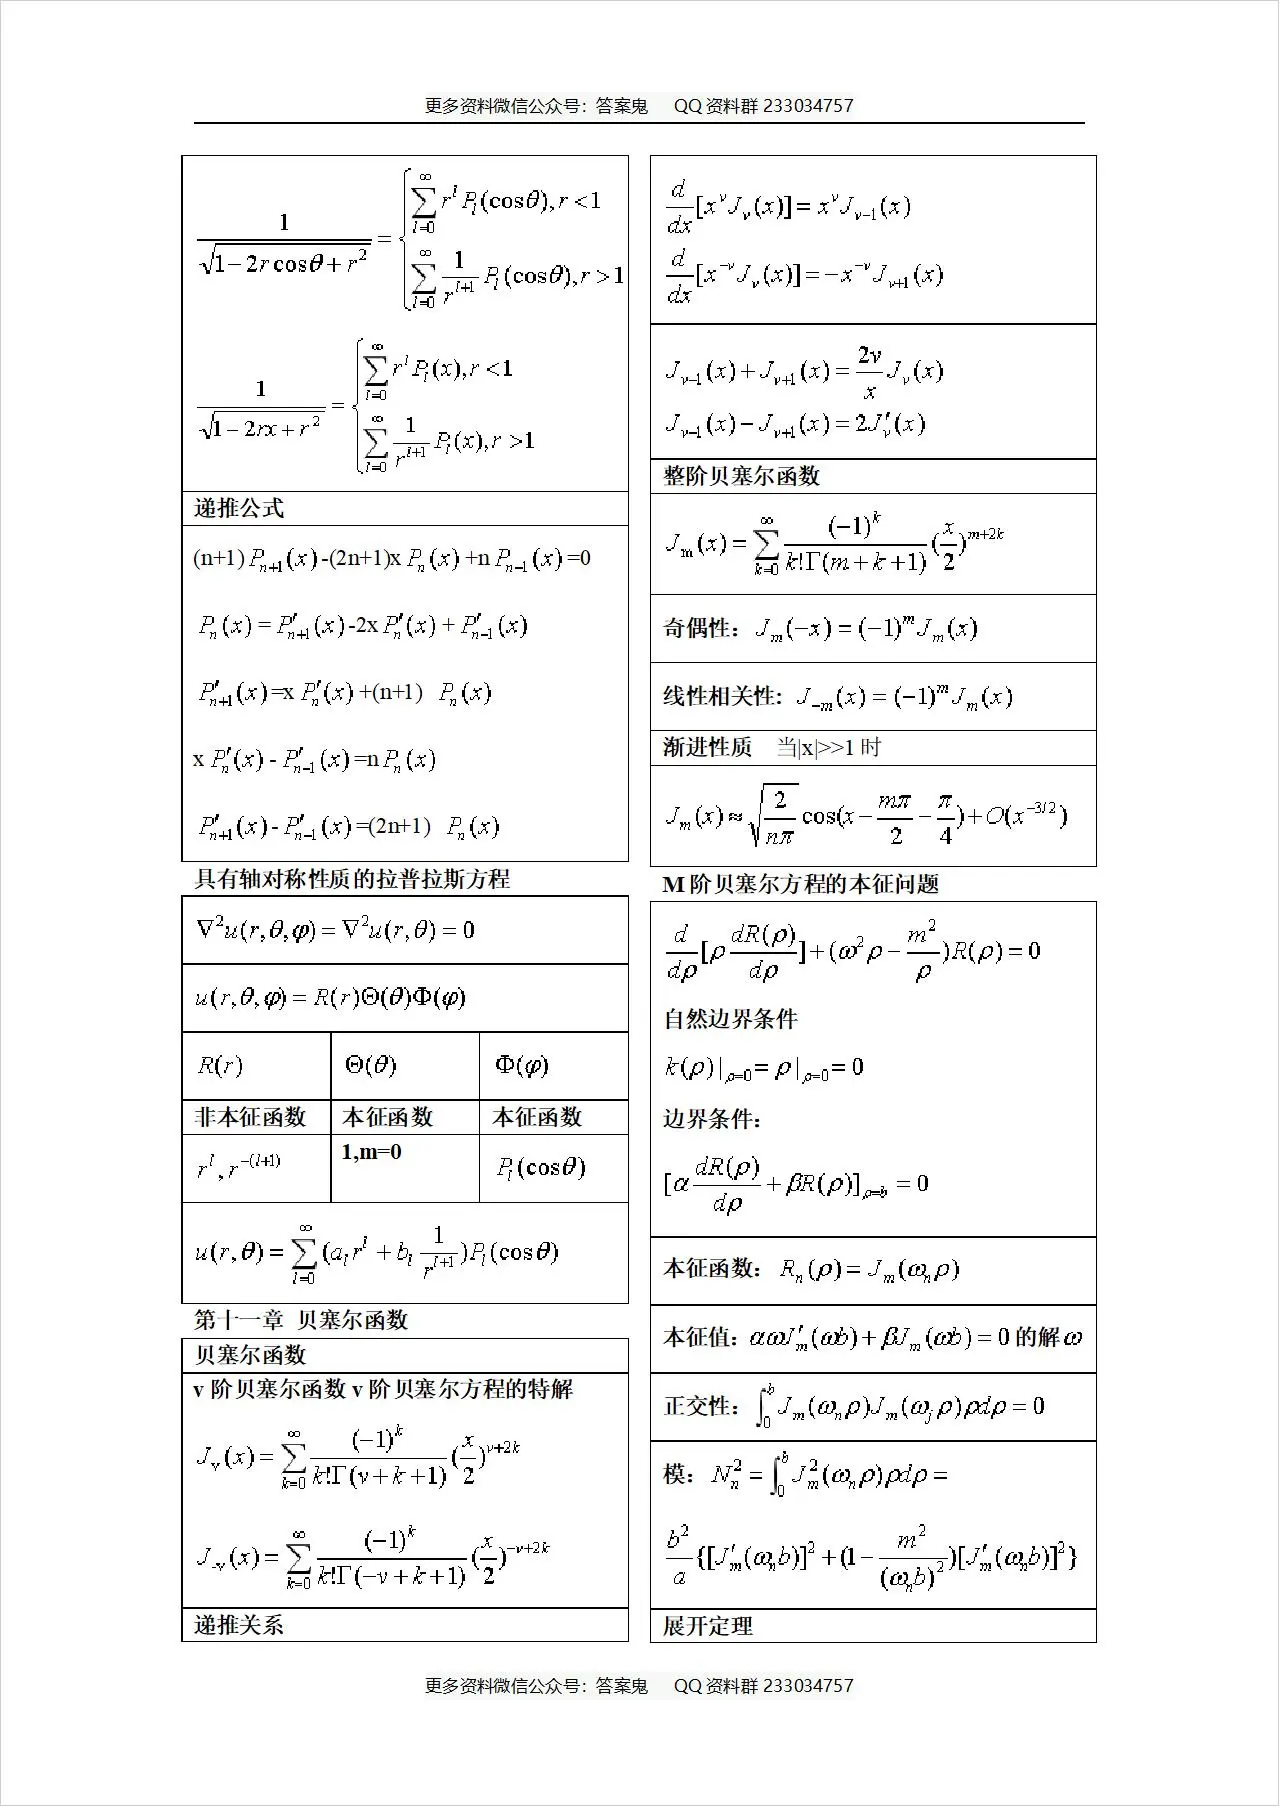 更多资料微信公众号：答案鬼 QQ 资料群 233034757
1/√(1−2r cosθ+r²) = { ∑_{l=0}^{∞} r^l P_l(cosθ), r<1
∑_{l=0}^{∞} 1/r^{l+1} P_l(cosθ), r>1
1/√(1−2rx+r²) = { ∑_{l=0}^{∞} r^l P_l(x), r<1
∑_{l=0}^{∞} 1/r^{l+1} P_l(x), r>1
递推公式
(n+1) P_{n+1}(x) -(2n+1)x P_n(x) +n P_{n−1}(x) =0
P_n(x) = P′_{n+1}(x) -2x P′_n(x) + P′_{n−1}(x)
P′_{n+1}(x) =x P′_n(x) +(n+1) P_n(x)
x P′_n(x) - P′_{n−1}(x) =n P_n(x)
P′_{n+1}(x) - P′_{n−1}(x) =(2n+1) P_n(x)
具有轴对称性质的拉普拉斯方程
∇²u(r,θ,φ)=∇²u(r,θ)=0
u(r,θ,φ)=R(r)Θ(θ)Φ(φ)
R(r) Θ(θ) Φ(φ)
非本征函数 本征函数 本征函数
r^l, r^{−(l+1)} 1,m=0 P_l(cosθ)
u(r,θ)=∑_{l=0}^{∞}(a_l r^l + b_l 1/r^{l+1})P_l(cosθ)
第十一章 贝塞尔函数
贝塞尔函数
v 阶贝塞尔函数 v 阶贝塞尔方程的特解
J_v(x)=∑_{k=0}^{∞} (−1)^k/(k!Γ(v+k+1)) (x/2)^{v+2k}
J_{-v}(x)=∑_{k=0}^{∞} (−1)^k/(k!Γ(−v+k+1)) (x/2)^{−v+2k}
递推关系
d/dx[x^v J_v(x)]=x^v J_{v−1}(x)
d/dx[x^{−v} J_v(x)]=−x^{−v} J_{v+1}(x)
J_{v−1}(x)+J_{v+1}(x)=2v/x J_v(x)
J_{v−1}(x)−J_{v+1}(x)=2J′_v(x)
整阶贝塞尔函数
J_m(x)=∑_{k=0}^{∞} (−1)^k/(k!Γ(m+k+1)) (x/2)^{m+2k}
奇偶性：J_m(−x)=(−1)^m J_m(x)
线性相关性：J_{−m}(x)=(−1)^m J_m(x)
渐进性质 当|x|>>1 时
J_m(x)≈√(2/nπ) cos(x−mπ/2−π/4)+O(x^{−3/2})
M 阶贝塞尔方程的本征问题
d/dρ[ρ dR(ρ)/dρ]+(ω²ρ−m²/ρ)R(ρ)=0
自然边界条件
k(ρ)|_{ρ=0}=ρ|_{ρ=0}=0
边界条件：
[α dR(ρ)/dρ+βR(ρ)]_{ρ=b}=0
本征函数：R_n(ρ)=J_m(ω_nρ)
本征值：αωJ′_m(ωb)+βJ_m(ωb)=0 的解ω
正交性：∫_0^b J_m(ω_nρ)J_m(ω_jρ)ρdρ=0
模：N_n²=∫_0^b J_m²(ω_nρ)ρdρ=
b²/a{[J′_m(ω_nb)]²+(1−m²/(ω_nb)²)[J′_m(ω_nb)]²}
展开定理
更多资料微信公众号：答案鬼 QQ 资料群 233034757